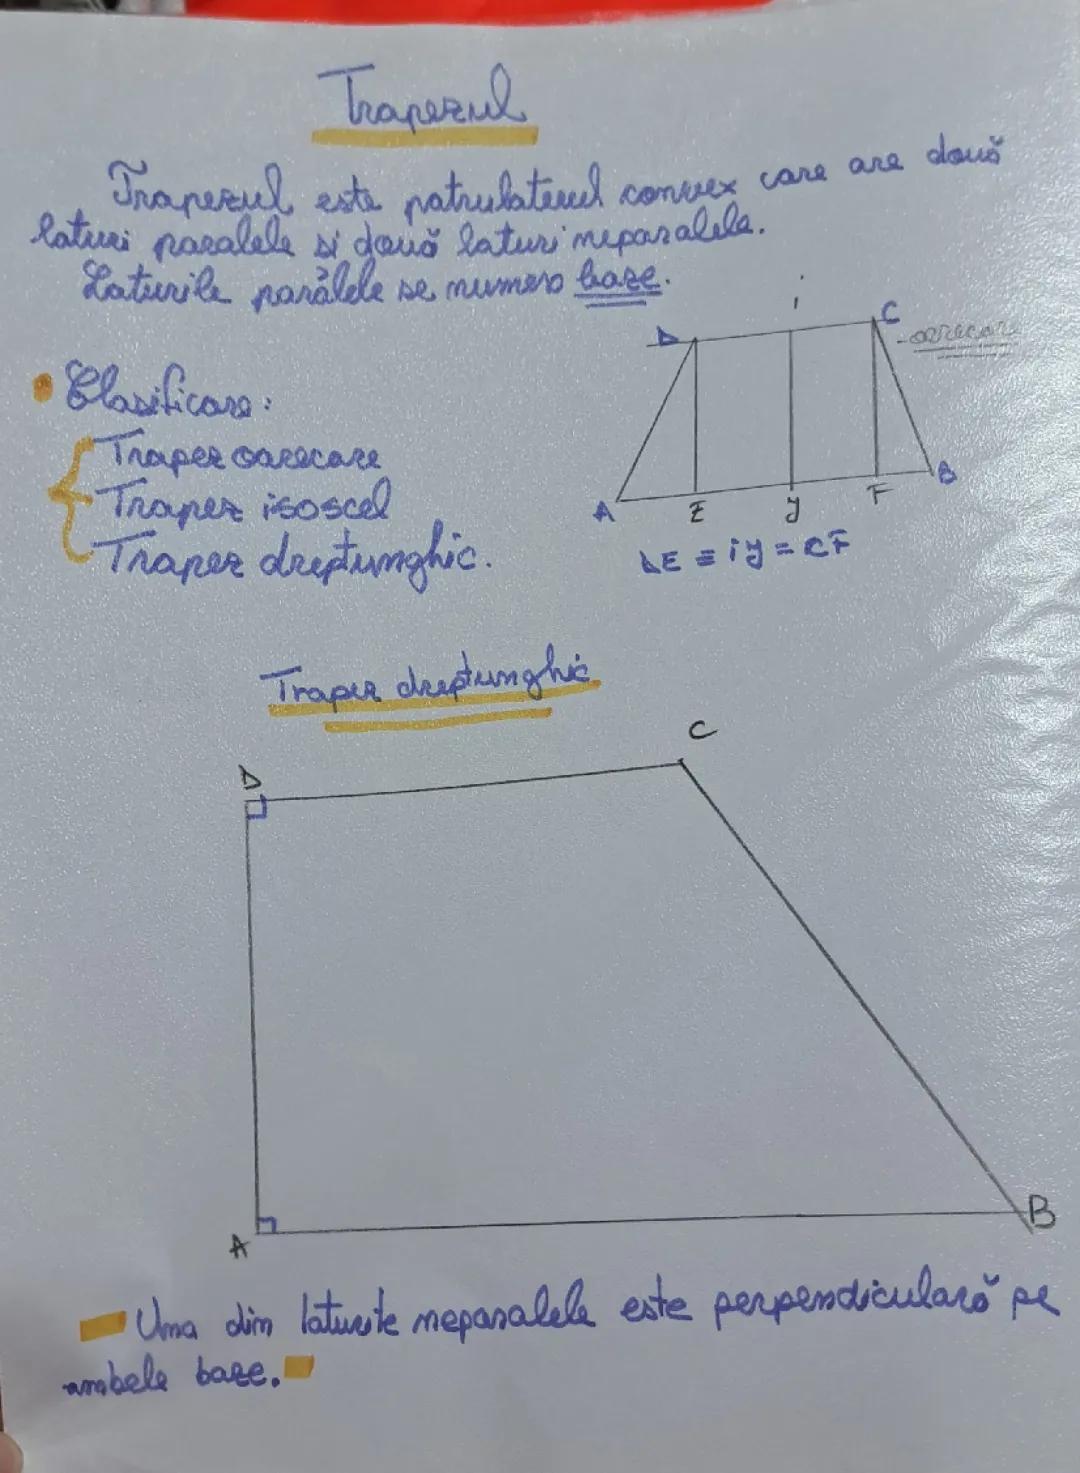 Trapezul
Trapezul este patrulaterul convex care are două
laturi paralele si două laturi neparalele.
Laturile parălele se numesc baze.
i
D
C
- oarecare
• Clasificare:
Trapez oarecare
Trapez isoscel
Trapez dreptunghic.
A
E
y
F
B
DE ≡ iy = CF
Trapez dreptunghic
D
C
A
B
Una din laturile neparalele este perpendiculară pe
ambele baze.